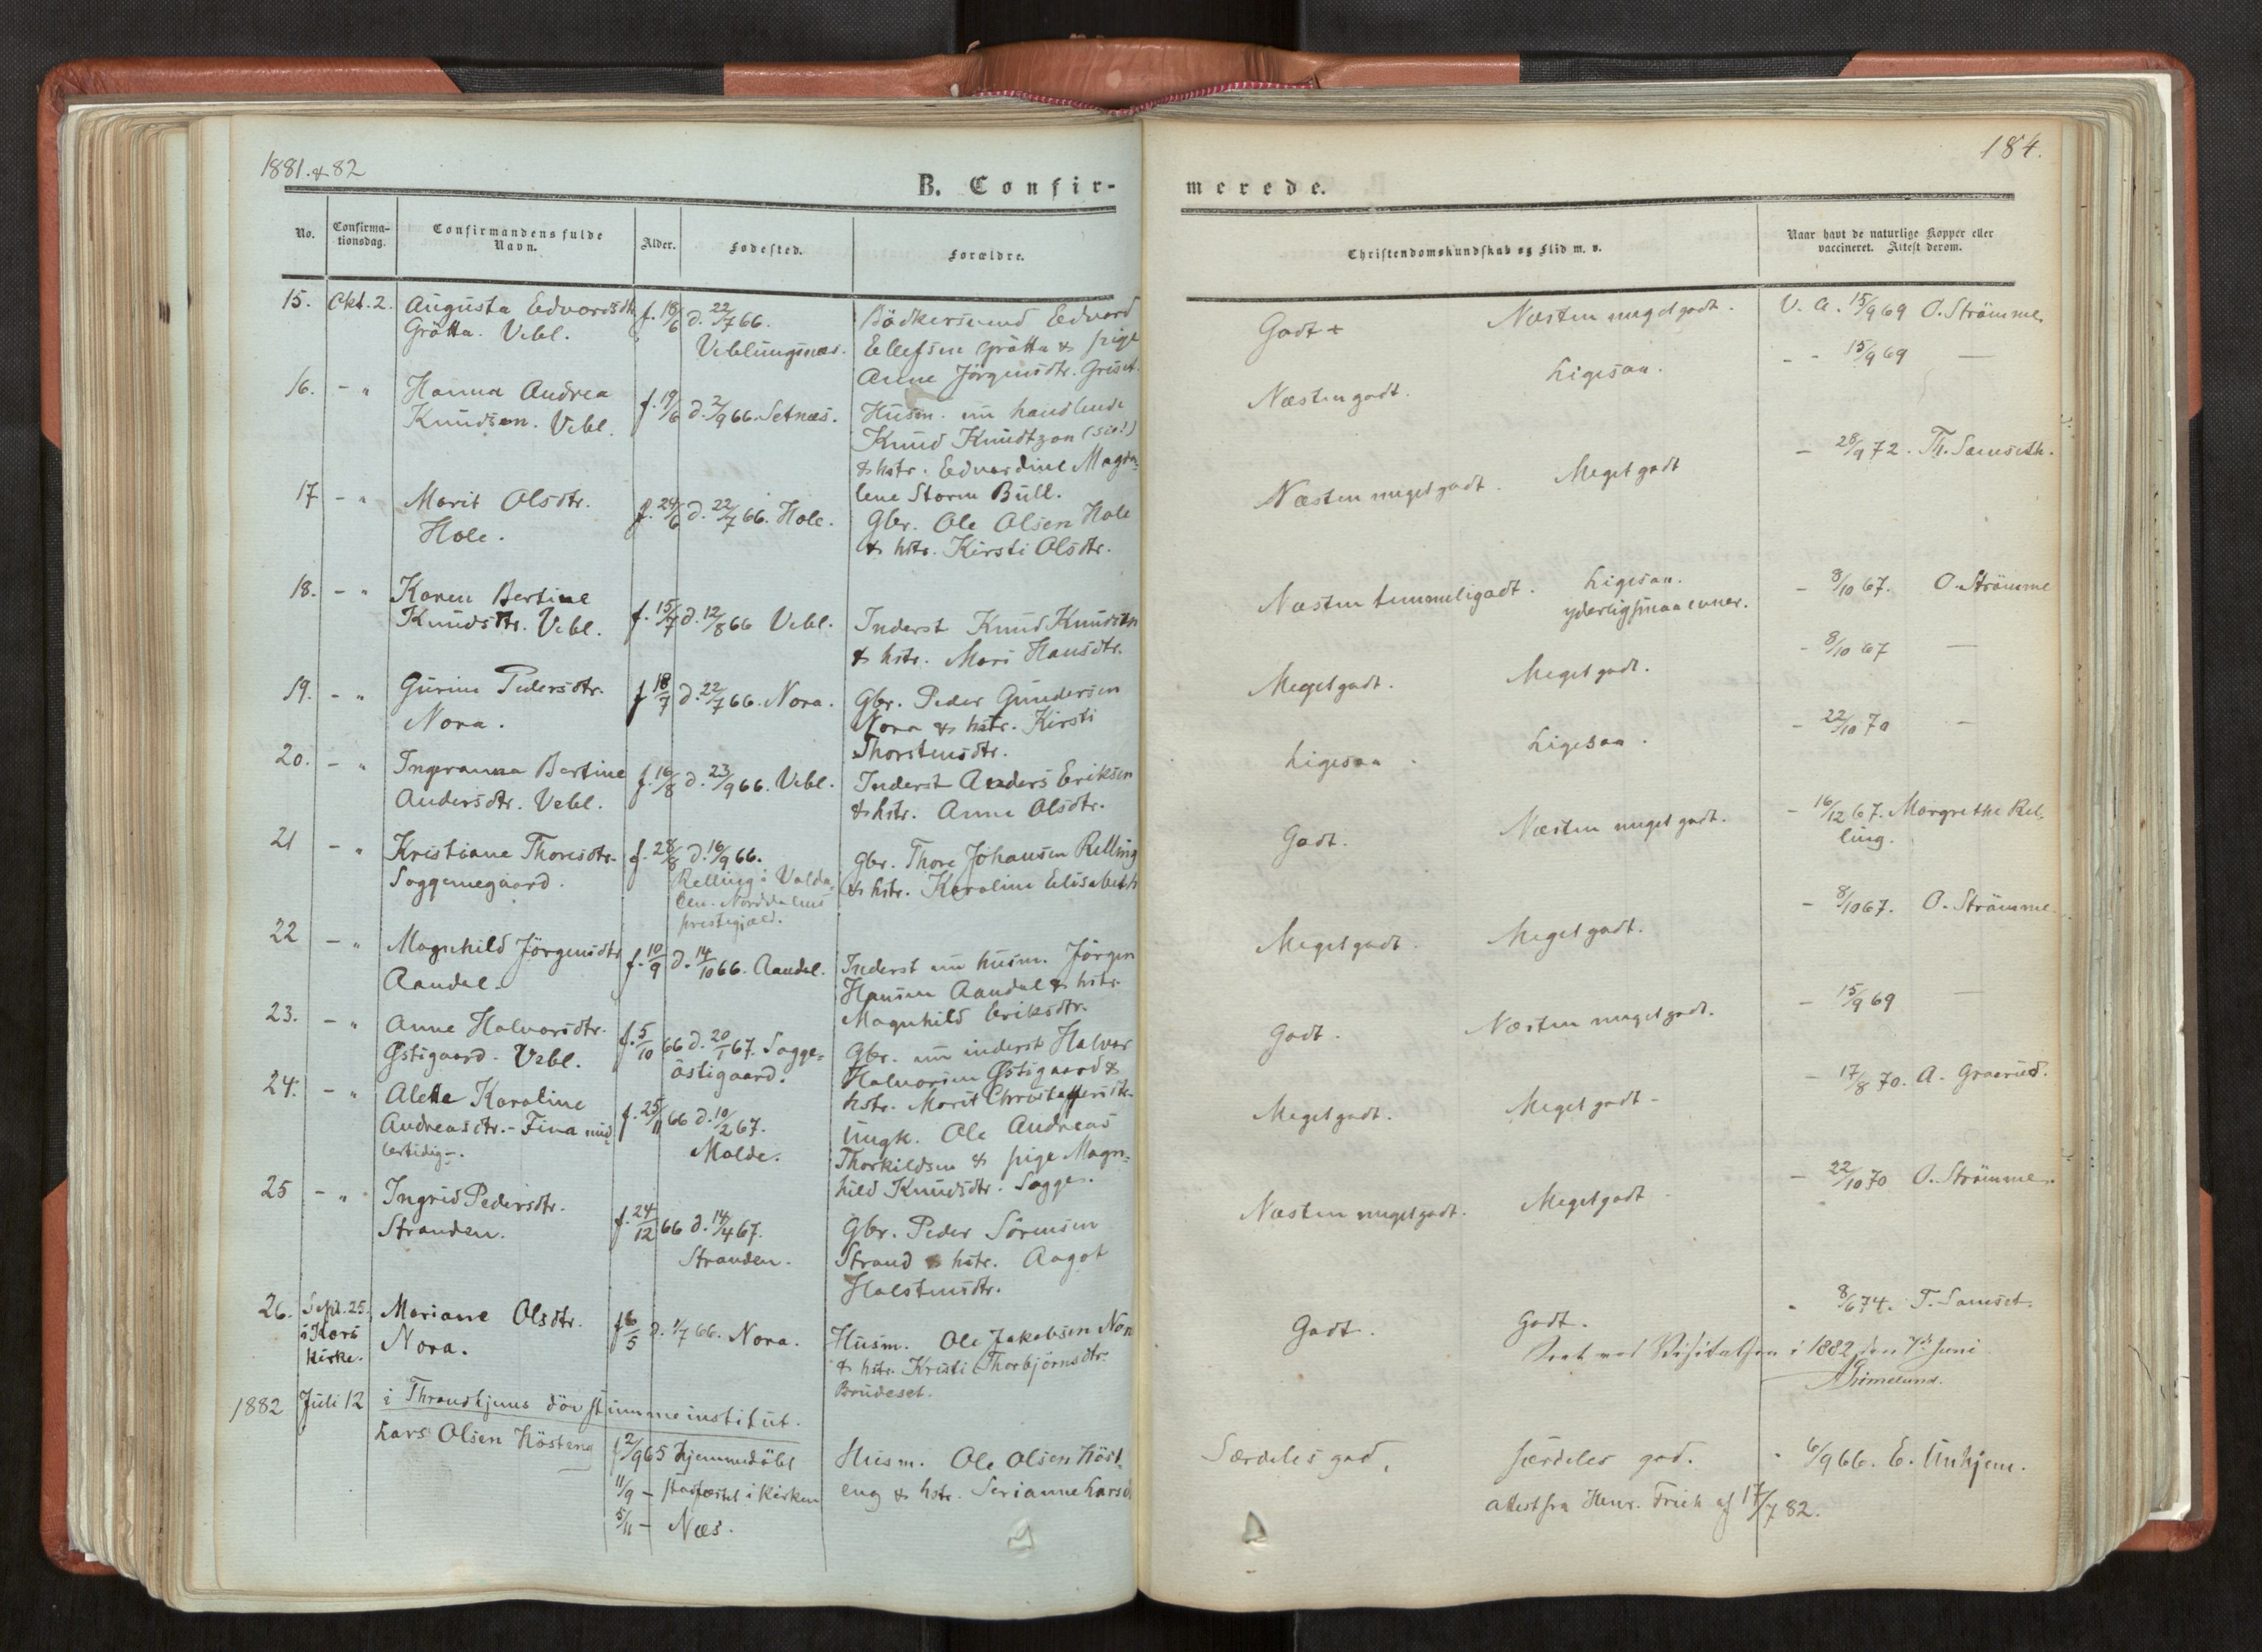 1881 & 82
B. Confir-
No.
Confirma-
tionsdag.
Confirmandens fulde
Navn.
Alder.
Fødested.
Forældre.
15. Okt. 2. Augusta Edvardsdtr. f. 18/6 d. 22/7 66. Bödkersvend Edvard
Grötta. Vebl. Veblungsnæs. Ellefsen Grötta & pige
Anne Jörgensdtr. Griset.
16. - " Hanna Andrea f. 19/6 d. 2/9 66. Setnæs. Husm. nu handlende
Knudsen. Vebl. Knud Knudtzon (sic!)
& hstr. Edvardine Magda-
lene Storm Bull.
17 - " Marit Olsdtr. f. 24/6 d. 22/7 66. Hole. Gbr. Ole Olsen Hole
Hole. & hstr. Kirsti Olsdtr.
18. - " Karen Bertine f. 15/7 d. 12/8 66 Vebl. Inderst Knud Knudsen
Knudsdtr. Vebl. & hstr. Mari Hansdtr.
19. - " Gurine Pedersdtr. f. 18/7 d. 22/7 66. Nora. Gbr. Peder Gundersen
Nora. Nora & hstr. Kirsti
Thorstensdtr.
20. - " Ingeranna Bertine f. 16/8 d. 23/9 66. Vebl. Inderst Anders Eriksen
Andersdtr. Vebl. & hstr. Anne Olsdtr.
21 - " Kristiane Thoresdtr. f. 28/8 d. 16/9 66. Gbr. Thore Johansen Relling
Soggemegaard. Relling i Valda- & hstr. Karoline Elisabeth
len. Norddalens
prestegjæld.
22 - " Magnhild Jörgensdtr. f. 10/9 d. 14/10 66. Aandal. Inderst nu husm. Jörgen
Aandal. Hansen Aandal & hstr.
Magnhild Eriksdtr.
23. - " Anne Halvorsdtr. f. 5/10 66 d. 20/1 67. Sogge- Gbr. nu inderst Halvor
Østigaard. Vebl. östigaard. Halvorsen Østigaard &
hstr. Marit Christoffersdtr.
24. - " Alette Karoline f. 25/11 66 d. 10/2 67. Ungk. Ole Andreas
Andreasdtr. - Fiva mid- Molde. Thorkildsen & pige Magn-
lertidig -. hild Knudsdtr. Sogge.
25 - " Ingrid Pedersdtr. f. 24/12 66 d. 14/4 67. Gbr. Peder Sörensen
Stranden. Stranden. Strand & hstr. Aagot
Halstensdtr.
26. Sept. 25. Mariane Olsdtr. f. 6/5 d. 1/7 66. Nora. Husm. Ole Jakobsen Nora
i Kors Nora. & hstr. Kristi Thorbjörnsdtr.
kirke. Brudeset.
1882 Juli 12 i Throndhjems döv stumme institut.
Lars Olsen Hösteng f. 2/9 65 hjemmedöbt Husm. Ole Olsen Höst-
11/9 - stadfæstet i kirken eng & hstr. Serianne Larsd
5/11 - Næs.
184.
merede.
Christendomskundskab og Flid m. v.
Naar havt de naturlige Kopper eller
vaccineret. Attest derom.
Godt + Næsten megetgodt. V. A. 15/9 69 O. Strömme.
Næsten godt. Ligesaa. - - 15/9 69 —
Næsten megetgodt. Megetgodt - 28/9 72. Th. Samseth.
Næsten temmeligodt. Ligesaa. - 8/10 67. O. Strömme
yderlig smaa evner.
Megetgodt. Megetgodt. - 8/10 67 —
Ligesaa. Ligesaa. - 22/10 70 —
Godt. Næsten megetgodt. - 16/12 67. Margrethe Rel-
ling.
Megetgodt. Megetgodt. - 8/10 67. O. Strömme.
Godt. Næsten megetgodt. - 15/9 69 —
Megetgodt. Megetgodt - - 17/8 70. A. Graerud.
Næsten megetgodt. Megetgodt - 22/10 70 O. Strömme.
Godt. Godt. " 8/6 74. T. Samset.
Seet ved Visitatsen i 1882 den 7de Juni
Særdeles god, særdeles god. " 6/9 66. E. Unhjem.
attest fra Henr. Frich af 17/7 82.